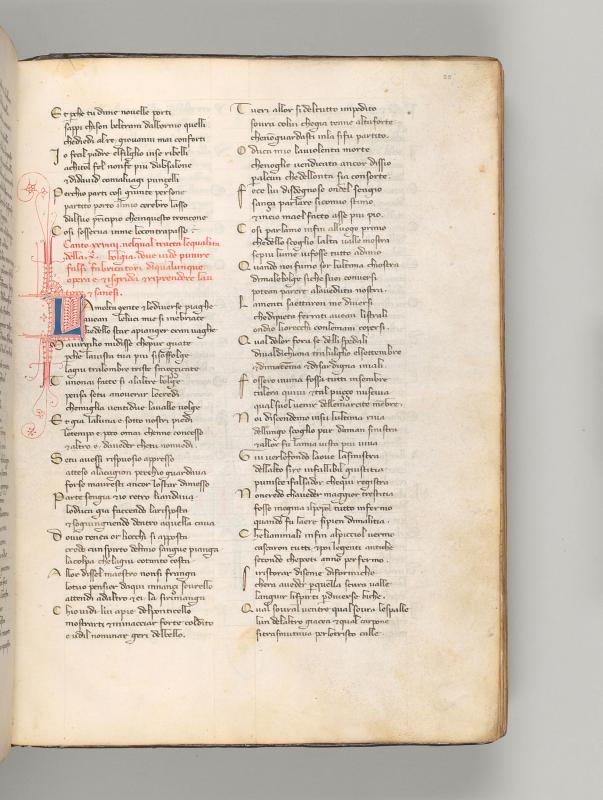 E t p̄che tu dime nouelle porti
sappi chison beltram dalbornio quelli
che diedi al re giouanni mai conforti
I o feci padre elfiglio inse ribelli
achitofel non fe piu dabsalone
e di dauid comaluagi puncelli
Perchio parti cosi giunte persone
partito porto il mio cerebro lasso
dal suo principio cheinquesto troncone
C osi sesserua inme locontrapasso
Canto xxviiij. nelqual tracta
della bolgia. doue uide punire
falsi fabricatori diqualunque
opera
L A molta gente e lediuerse piaghe
auean leluci mie si inebriate
che dello star apianger eran uaghe
M auirgilio midisse chepur guate
perche lauista tua pur sisoffolge
lagiu tralombre triste smozzicate
T u non ai facto si alaltre bolge
pensa setu anouerar lecredi
che miglia uentidue laualle uolge
E t gia laluna e sotto nostri piedi
lo tempo e poco omai chenne concesso
et altro e daueder chetu nonuedi
S e tu auessi rispuosio appresso
atteso alacagion perchio guardaua
forse mauresti ancor lostar dimesso
Parte sengia et io retro liandaua
loduca gia faccendo larisposta
et sogiungnendo dentro aquella caua
D ouio tenea or liocchi si apposta
credo cunspirto delmio sangue pianga
lacolpa che lagiu cotanto costa
A llor disse lmaestro nonsi franga
lotuo pensier daqui innançi sourello
attendi adaltro et ei la sirimanga
C hio uidi lui apie delponticello
mostrarti et minacciar forte coldito
et udil nominar geri delbello.
T u eri allor si deltutto impedito
soura colui chegia tenne altaforte
che non guardasti inla sifu partito.
O duca mio lauiolenta morte
chenogli e uendicata ancor dissio
palcun che dellonta sia consorte
F ece lui disdegnoso ondel sengio
sança parlare sicomio stimo
et in cio mael facto asse piu pio.
C osi parlamo infin alluogo primo
che dello scoglio laltra ualle mostra
sepiu lume uifosse tutto adimo
Q uando noi fumo sor lultima chiostra
dimalebolge siche suoi conuersi
potean parere alaueduta nostra.
L amenti saettaron me diuersi
che dipieta ferrati auean listrali
ondio liorecchi conlemani copersi.
Q ual dolor fora se delli spedali
diualdichiana tralluglio elsettembre
et dimarema et disardigna imali
F ossero inuna fossa tutti insembre
tal era quiui et tal puçço nusciua
qual suol uenir dellemarcite membre.
N oi discendemo insu lultima riua
dellungo scoglio pur daman sinistra
et allor fu lamia uista piu uiua
G iu uerlofondo laoue laministra
dellalto sire infallibil giustitia
punisce ifalsador chequi registra
N on credo chaueder maggior trestitia
fosse inegina ilpopol tutto infermo
quando fu laere sipien dimalitia
C heli animali infin alpicciol uermo
cascaron tutti et poi legenti antiche
secondo chepoeti anno perfermo
S i ristorar diseme diformiche
chera aueder p quella scura ualle
languir lispirti pdiuerse biche.
Q ual soural uentre qual soura lespalle
lun dellaltro giacea et qual carpone
sitrasmutaua perlotristo calle